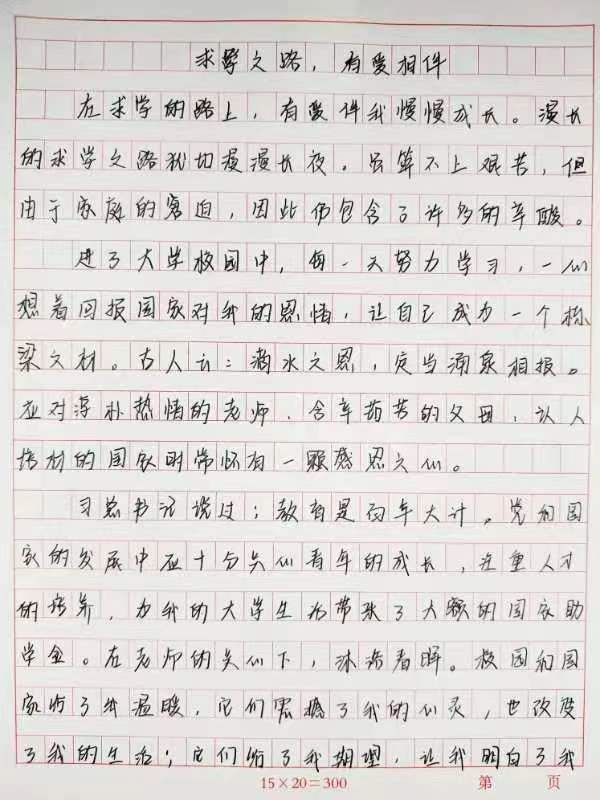 求学之路，有爱相伴
在求学的路上，有爱伴我慢慢成长。漫长
的求学之路犹如漫漫长夜。虽算不上艰苦，但
由于家庭的窘迫，因此仍包含了许多的辛酸。
进了大学校园中，每一天努力学习，一心
想着回报国家对我的恩情，让自己成为一个栋
梁之材。古人云：滴水之恩，定当涌泉相报。
应对淳朴热情的老师、含辛茹苦的父母，以人
培材的国家时常怀有一颗感恩之心。
习总书记说过；教育是百年大计。党和国
家的发展中应十分关心青年的成长，注重人才
的培养，为我的大学生活带来了大额的国家助
学金。在老师的关心下，沐浴春晖。校园和国
家给了我温暖，它们震撼了我的心灵，也改变
了我的生活；它们给了我期望，让我明白了我
15×20=300 第 页